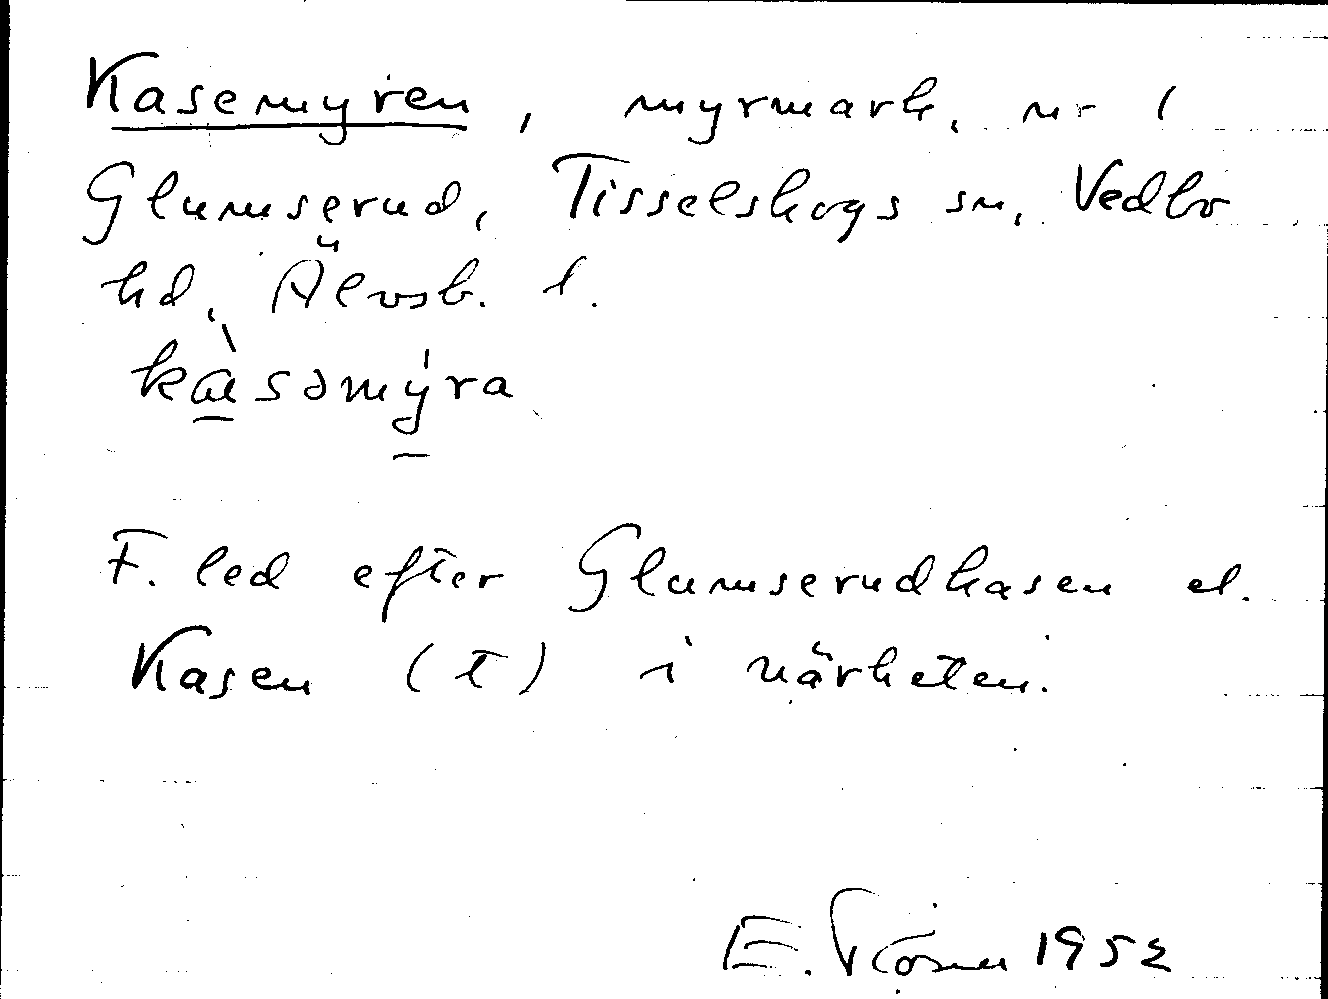 Kasemyren, myrmark, nr 1
Glumserud, Tisselskogs sn, Vedbo
hd, Älvsb. l.
kàsəmýra
F. led efter Glumserudkasen el.
Kasen (T) i närheten.
E. 1952